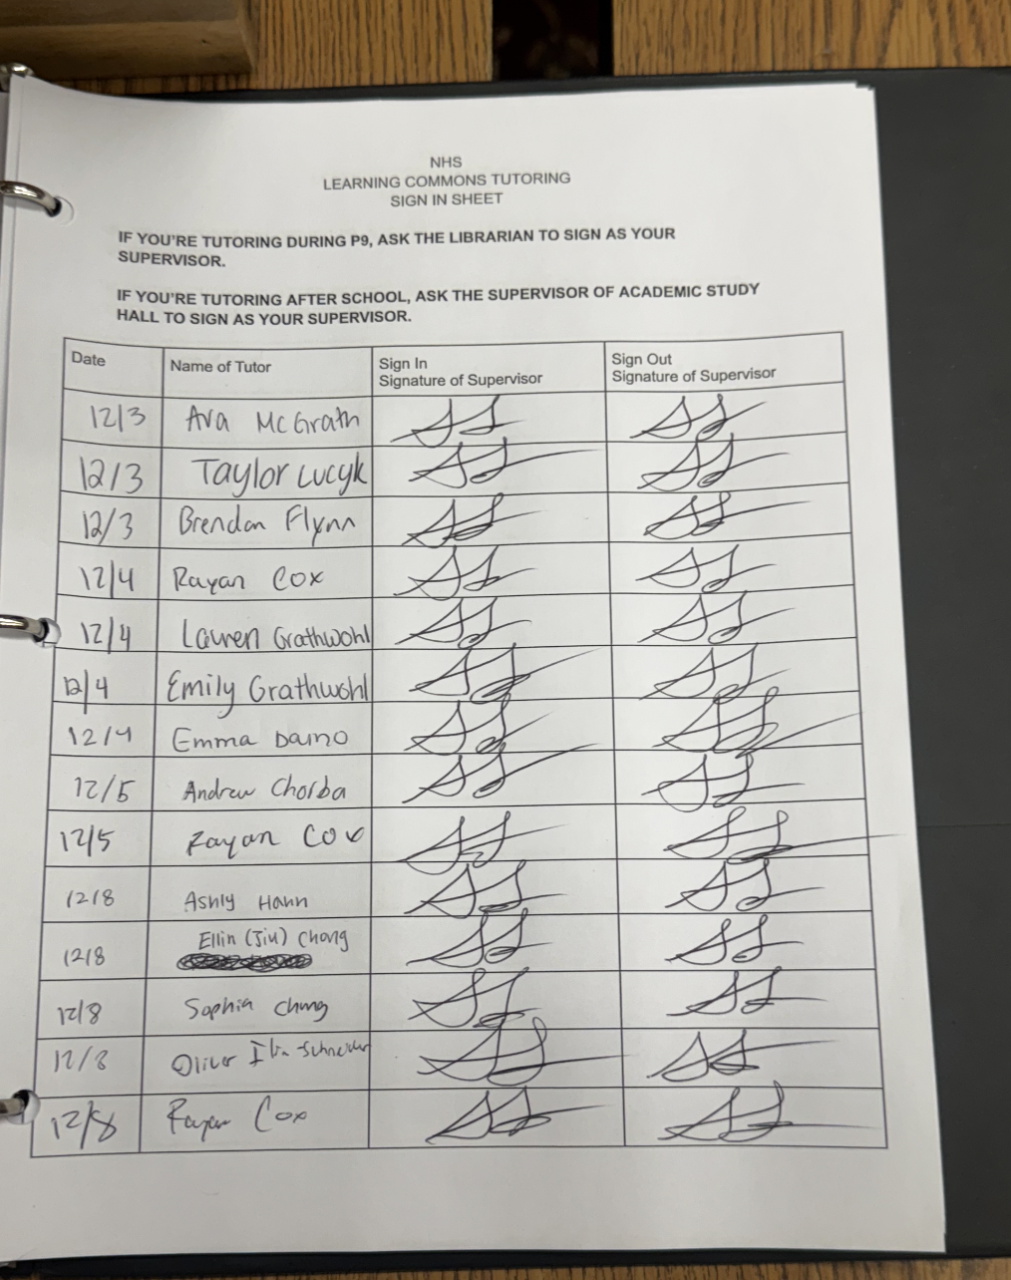 NHS
LEARNING COMMONS TUTORING
SIGN IN SHEET
IF YOU'RE TUTORING DURING P9, ASK THE LIBRARIAN TO SIGN AS YOUR
SUPERVISOR.
IF YOU'RE TUTORING AFTER SCHOOL, ASK THE SUPERVISOR OF ACADEMIC STUDY
HALL TO SIGN AS YOUR SUPERVISOR.
Date Name of Tutor Sign In Sign Out
Signature of Supervisor Signature of Supervisor
12/3 Ava McGrath
12/3 Taylor Lucyk
12/3 Brendan Flynn
12/4 Rayan Cox
12/4 Lauren Grathwohl
12/4 Emily Grathwohl
12/4 Emma Daino
12/5 Andrew Chorba
12/5 Rayan Cox
12/8 Ashly Hahn
12/8 Ellin (Jiu) Chong
12/8 Sophia Chung
12/8 Oliver Schneider
12/8 Rayan Cox